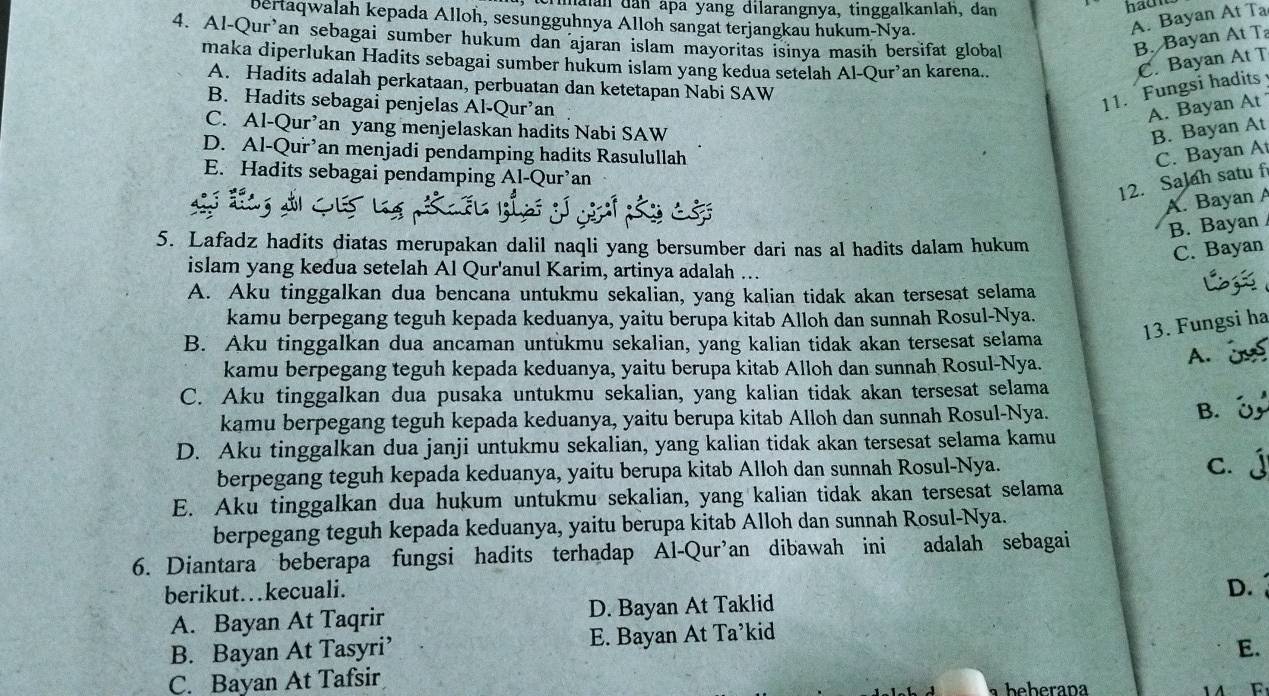 dan apa yang dilarangnya, tinggalkanlah, dan
bertaqwalah kepada Alloh, sesungguhnya Alloh sangat terjangkau hukum-Nya.
4. Al-Qur’an sebagai sumber hukum dan ajaran islam mayoritas isinya masih bersifat global
maka diperlukan Hadits sebagai sumber hukum islam yang kedua setelah Al-Qur’an karena..
A. Hadits adalah perkataan, perbuatan dan ketetapan Nabi SAW
B. Hadits sebagai penjelas Al-Qur’an
C. Al-Qur’an yang menjelaskan hadits Nabi SAW
D. Al-Qur’an menjadi pendamping hadits Rasulullah
E. Hadits sebagai pendamping Al-Qur’an
تَرَكْتُ فِيْكُمْ أَمْرَيْنِ لَنْ تَضِلُّوْا مَاتَمَسَّكْتُمْ بِهِمَا كِتَابَ اللهِ وَسُنَّةَ نَبِيِّهِ
5. Lafadz hadits diatas merupakan dalil naqli yang bersumber dari nas al hadits dalam hukum
islam yang kedua setelah Al Qur'anul Karim, artinya adalah …
A. Aku tinggalkan dua bencana untukmu sekalian, yang kalian tidak akan tersesat selama
kamu berpegang teguh kepada keduanya, yaitu berupa kitab Alloh dan sunnah Rosul-Nya.
B. Aku tinggalkan dua ancaman untukmu sekalian, yang kalian tidak akan tersesat selama
kamu berpegang teguh kepada keduanya, yaitu berupa kitab Alloh dan sunnah Rosul-Nya.
C. Aku tinggalkan dua pusaka untukmu sekalian, yang kalian tidak akan tersesat selama
kamu berpegang teguh kepada keduanya, yaitu berupa kitab Alloh dan sunnah Rosul-Nya.
D. Aku tinggalkan dua janji untukmu sekalian, yang kalian tidak akan tersesat selama kamu
berpegang teguh kepada keduanya, yaitu berupa kitab Alloh dan sunnah Rosul-Nya.
E. Aku tinggalkan dua hukum untukmu sekalian, yang kalian tidak akan tersesat selama
berpegang teguh kepada keduanya, yaitu berupa kitab Alloh dan sunnah Rosul-Nya.
6. Diantara beberapa fungsi hadits terhadap Al-Qur’an dibawah ini adalah sebagai
berikut…kecuali.
A. Bayan At Taqrir
B. Bayan At Tasyri’
C. Bayan At Tafsir
D. Bayan At Taklid
E. Bayan At Ta’kid
beberapa
A. Bayan At Ta
B. Bayan At Ta
C. Bayan At T
11. Fungsi hadits
A. Bayan At
B. Bayan At
C. Bayan At
12. Salah satu f
A. Bayan A
B. Bayan
C. Bayan
13. Fungsi ha
A.
B.
C.
D.
E.
14.